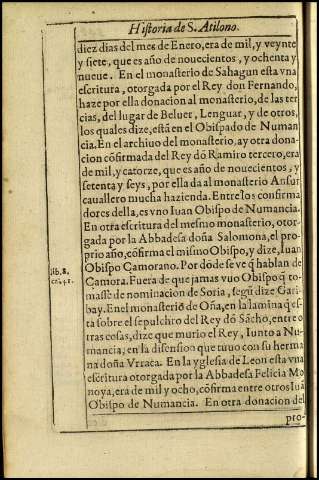 Historia de S. Atilono.
diez dias del mes de Enero, era de mil, y veynte
y siete, que es año de nouecientos, y ochenta y
nueue. En el monasterio de Sahagun esta vna
escritura, otorgada por el Rey don Fernando,
haze por ella donacion al monasterio, de las ter
cias, del lugar de Beluer, Lenguar, y de otros,
los quales dize, està en el Obispado de Numan
cia. En el archiuo del monasterio, ay otra dona-
cion cõfirmada del Rey dõ Ramiro tercero, era
de mil, y catorze, que es año de nouecientos, y
setenta y seys, por ella da al monasterio Ansur
cauallero mucha hazienda. Entre los confirma
dores della, es vno Iuan Obispo de Numancia.
En otra escritura del mesmo monasterio, otor-
gada por la Abbadesa doña Salomona, el pro-
prio año, cõfirma el mismo Obispo, y dize, Iuan
Obispo Çamorano. Por dõde se ve q̃ hablan de
lib. 8.
Çamora. Fuera de que jamas vuo Obispo q̃ to-
masse denominacion de Soria, segũ dize Gari-
bay. En el monasterio de Oña, en la lamina q̃ es-
ta sobre el sepulchro del Rey dõ Sãcho, entre o
tras cosas, dize que murio el Rey, Iunto a Nu-
mancia, en la disension que tuuo con su herma
na doña Vrraca. En la yglesia de Leon esta vna
escritura otorgada por la Abbadesa Felicia Mo
noya, era de mil y ocho, cõfirma entre otros Iuã
Obispo de Numancia. En otra donacion del
pro-